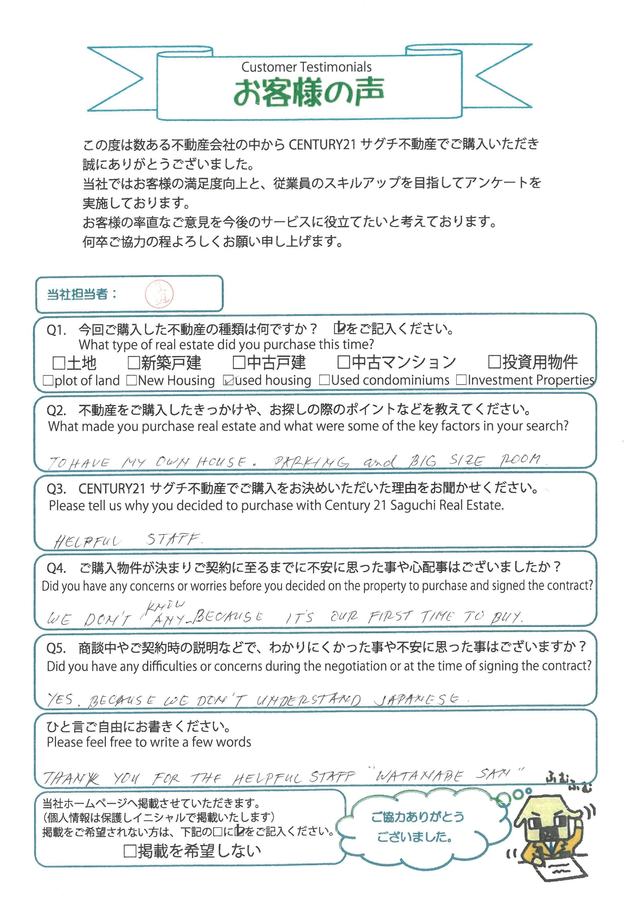 Customer Testimonials
お客様の声
この度は数ある不動産会社の中から CENTURY21 サグチ不動産でご購入いただき
誠にありがとうございました。
当社ではお客様の満足度向上と、従業員のスキルアップを目指してアンケートを
実施しております。
お客様の率直なご意見を今後のサービスに役立てたいと考えております。
何卒ご協力の程よろしくお願い申し上げます。
当社担当者：
Q1. 今回ご購入した不動産の種類は何ですか？ ☑をご記入ください。
What type of real estate did you purchase this time?
□土地 □新築戸建 □中古戸建 □中古マンション □投資用物件
□plot of land □New Housing ☑used housing □Used condominiums □Investment Properties
Q2. 不動産をご購入したきっかけや、お探しの際のポイントなどを教えてください。
What made you purchase real estate and what were some of the key factors in your search?
TO HAVE MY OWN HOUSE. PARKING and BIG SIZE ROOM.
Q3. CENTURY21 サグチ不動産でご購入をお決めいただいた理由をお聞かせください。
Please tell us why you decided to purchase with Century 21 Saguchi Real Estate.
HELPFUL STAFF.
Q4. ご購入物件が決まりご契約に至るまでに不安に思った事や心配事はございましたか？
Did you have any concerns or worries before you decided on the property to purchase and signed the contract?
WE DON'T KNOW ANY BECAUSE IT'S OUR FIRST TIME TO BUY.
Q5. 商談中やご契約時の説明などで、わかりにくかった事や不安に思った事はございますか？
Did you have any difficulties or concerns during the negotiation or at the time of signing the contract?
YES. BECAUSE WE DON'T UNDERSTAND JAPANESE.
ひと言ご自由にお書きください。
Please feel free to write a few words
THANK YOU FOR THE HELPFUL STAFF "WATANABE SAN"
当社ホームページへ掲載させていただきます。
(個人情報は保護しイニシャルで掲載いたします)
掲載をご希望されない方は、下記の□に☑をご記入ください。
□掲載を希望しない
ご協力ありがとう
ございました。
ふむふむ